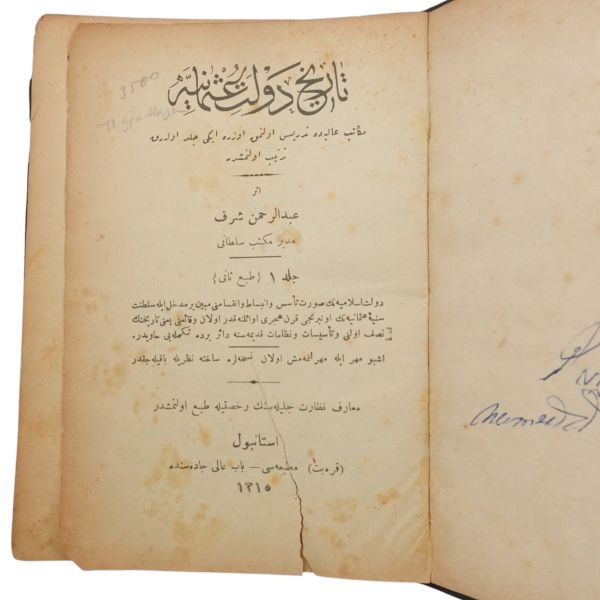 تاريخ دولت عثمانيه
مكاتب عاليه‌ده تدريس اولنمق اوزره ايكى جلد اوله‌رق
ترتيب اولنمشدر
اثر
عبدالرحمن شرف
مدير مكتب سلطانى
جلد ١ {طبع ثانى}
دولت اسلاميه‌نك صورت تأسس وانبساط وانقسامنى مبين بر مدخل ايله سلطنت
سنيۀ عثمانيه‌نك اون برنجى قرن هجرى اوائلنه قدر اولان وقائعنى يعنى تاريخنك
نصف اولنى وتأسيسات ونظامات قديمه‌سنه دائر برده تكمله‌يى حاويدر.
اشبو مهر ايله مهرلنمه‌مش اولان نسخه‌لره ساخته نظريله باقيله‌جقدر
معارف نظارت جليله‌سنك رخصتيله طبع اولنمشدر
استانبول
(قره‌بت) مطبعه‌سى — باب عالى جاده‌سنده
١٣١٥
3500